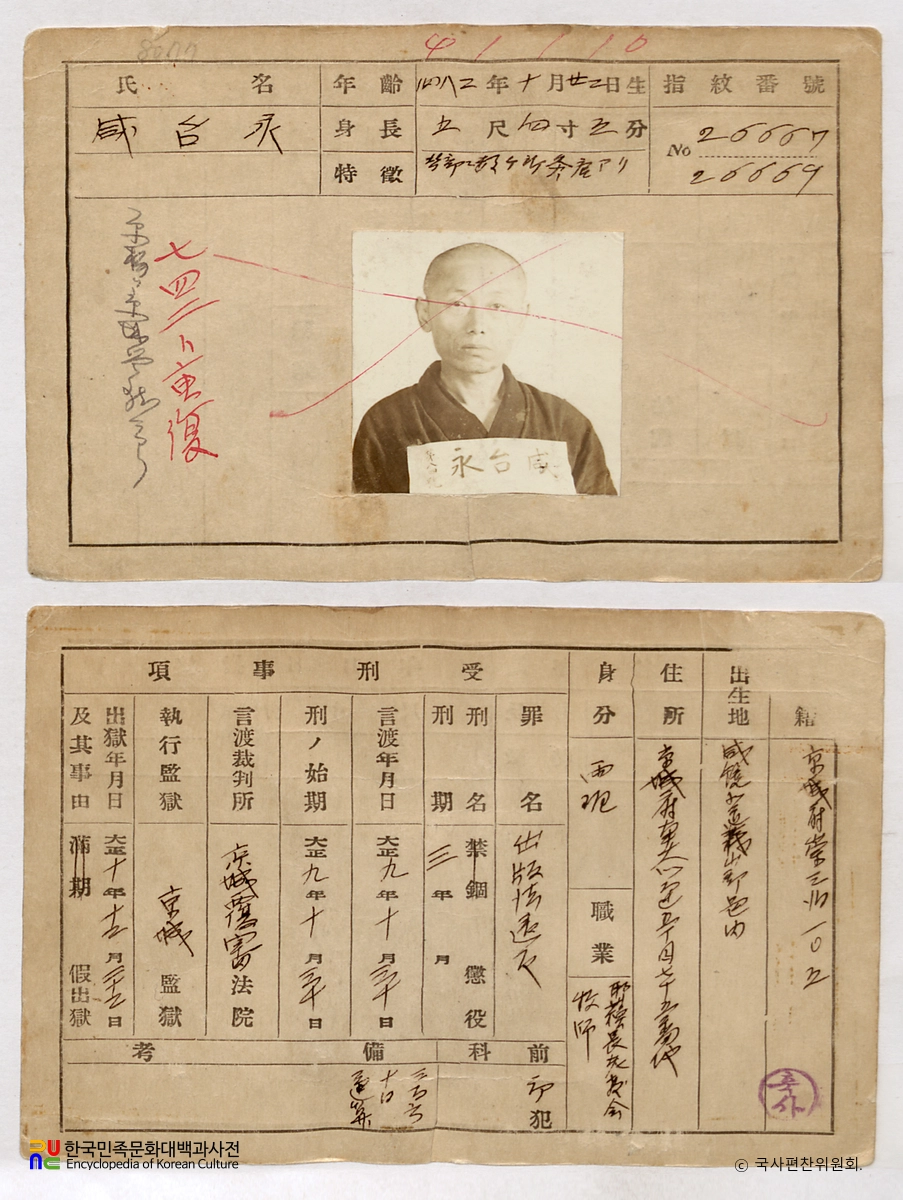 8077
4 1 1 1 0
氏名
咸台永
年齡
一八八二年十月廿二日生
身長
五尺四寸五分
特徵
指紋番號
No 26667
26669
七四二ト重復
咸台永
籍
京城府崇三洞一〇五
出生地
住所
身分
両班
職業
耶蘇長老教会
牧師
受刑事項
罪名
出版法違反
刑名
禁錮 懲役
刑期
三年 月
言渡年月日
大正九年十月三十日
刑ノ始期
大正九年十月三十日
言渡裁判所
京城覆審法院
執行監獄
京城監獄
出獄年月日及其事由
大正十年十二月二十二日
滿期 假出獄
前科
初犯
備考
三百六
十日
通算
국사
한국민족문화대백과사전
Encyclopedia of Korean Culture
© 국사편찬위원회.